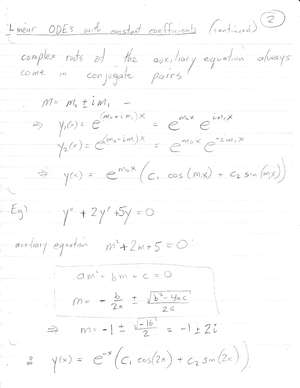 Linear ODEs with constant coefficients (continued) 2
complex roots of the auxiliary equation always
come in conjugate pairs
m = m₀ ± i m₁ -
⇒ y₁(x) = e^((m₀+im₁)x) = e^(m₀x) e^(im₁x)
y₂(x) = e^((m₀-im₁)x) = e^(m₀x) e^(-im₁x)
⇒ y(x) = e^(m₀x) (c₁ cos(m₁x) + c₂ sin(m₁x))
Eg) y'' + 2y' + 5y = 0
auxiliary equation m² + 2m + 5 = 0
am² + bm + c = 0
m = - b/2a ± √(b² - 4ac)/2a
⇒ m = -1 ± √-16/2 = -1 ± 2i
∴ y(x) = e^(-x) (c₁ cos(2x) + c₂ sin(2x)).